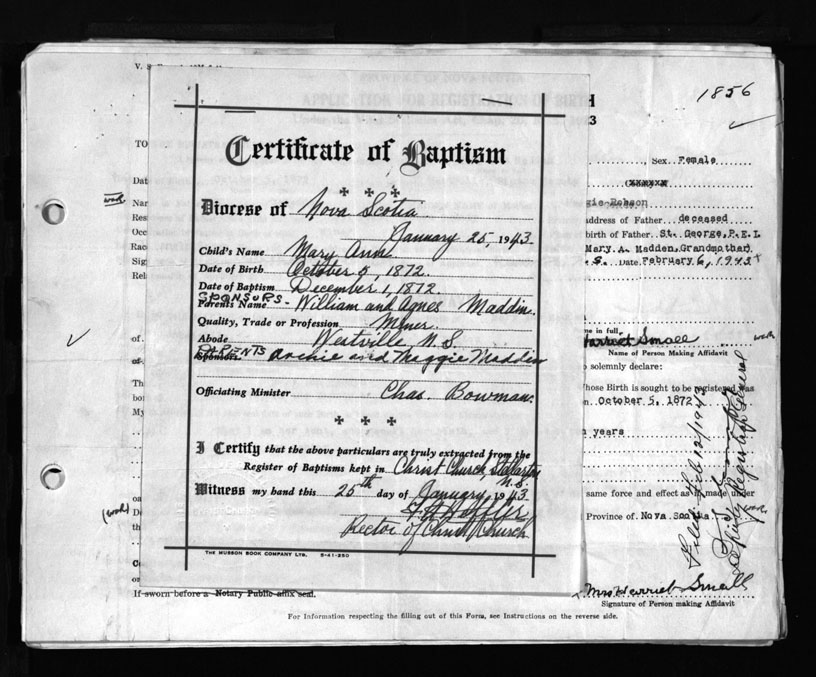 1856
Certificate of Baptism
Diocese of Nova Scotia
January 25, 1943.
Child's Name Mary Ann.
Date of Birth October 5, 1872.
Date of Baptism December 1, 1872.
SPONSORS-
Parents Name William and Agnes Maddin.
Quality, Trade or Profession Miner.
Abode Westville, N.S.
PARENTS
Sponsors Archie and Maggie Madden
Officiating Minister Chas. Bowman.
I Certify that the above particulars are truly extracted from the
Register of Baptisms kept in Christ Church, Stellarton
N.S.
Witness my hand this 25th day of January, 1943.
Rector of Christ Church
THE MUSSON BOOK COMPANY LTD. 5-41-250
V. S.
TO
Dat
Nam
Res
Occ
Rac
Sig
Rel
of
Th
bor
My
H
3
Sex Female
xxxxxx
gie Robson
address of Father deceased
birth of Father St. George, P.E.I
Mary. A. Madden, Grandmother)
S. Date February 6, 1943
me in full
Harriet Small
Name of Person Making Affidavit
solemnly declare:
hose Birth is sought to be registered was
n October 5, 1872
years
same force and effect as if made under
Province of Nova Scotia
Filed Feb 12/1943
Deputy Registrar General
Mrs Harriet Small
Signature of Person making Affidavit
If sworn before a Notary Public affix seal.
For Information respecting the filling out of this Form, see Instructions on the reverse side.